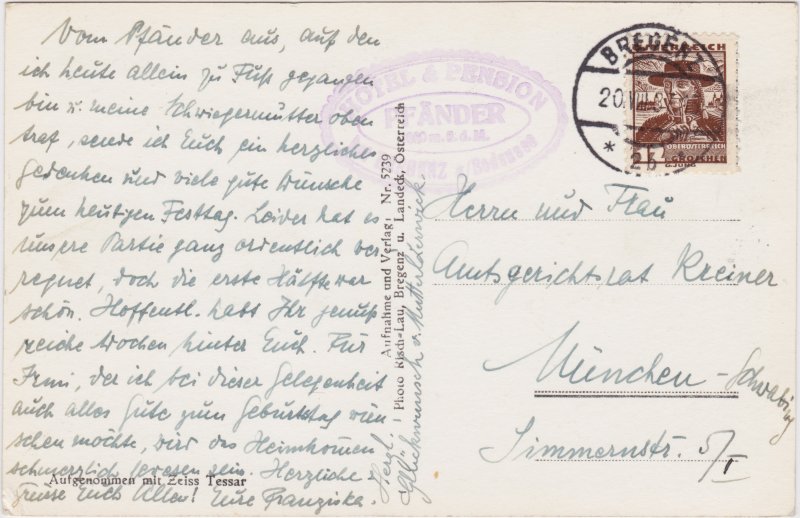 Vom Pfänder aus, auf den
ich heute allein zu Fuß gegangen
bin u. meine Schwiegermutter oben
traf, sende ich Euch ein herzliches
Gedenken und viele gute Wünsche
zum heutigen Festtag. Leider hat es
unsere Partie ganz ordentlich ver
regnet, doch die erste Hälfte war
schön. Hoffentl. habt Ihr genuß
reiche Wochen hinter Euch. Für
Irmi, der ich bei dieser Gelegenheit
auch alles Gute zum Geburtstag wün
schen möchte, wird das Heimkommen
schmerzlich gewesen sein. Herzliche
Grüße Euch Allen! Eure Franziska.
Aufgenommen mit Zeiss Tessar
Herzl.
Glückwunsch v.
Aufnahme und Verlag: Nr. 5239
Photo Risch-Lau, Bregenz u. Landeck, Österreich
HOTEL & PENSION
PFÄNDER
m. ü. d. M.
BREGENZ a/Bodensee
BREGENZ
20.VIII.
* 2b *
ÖSTERREICH
OBERÖSTERREICH
GROSCHEN
Herrn und Frau
Amtsgerichtsrat Kreiner
München-Schwabing
Simmernstr. 5/I